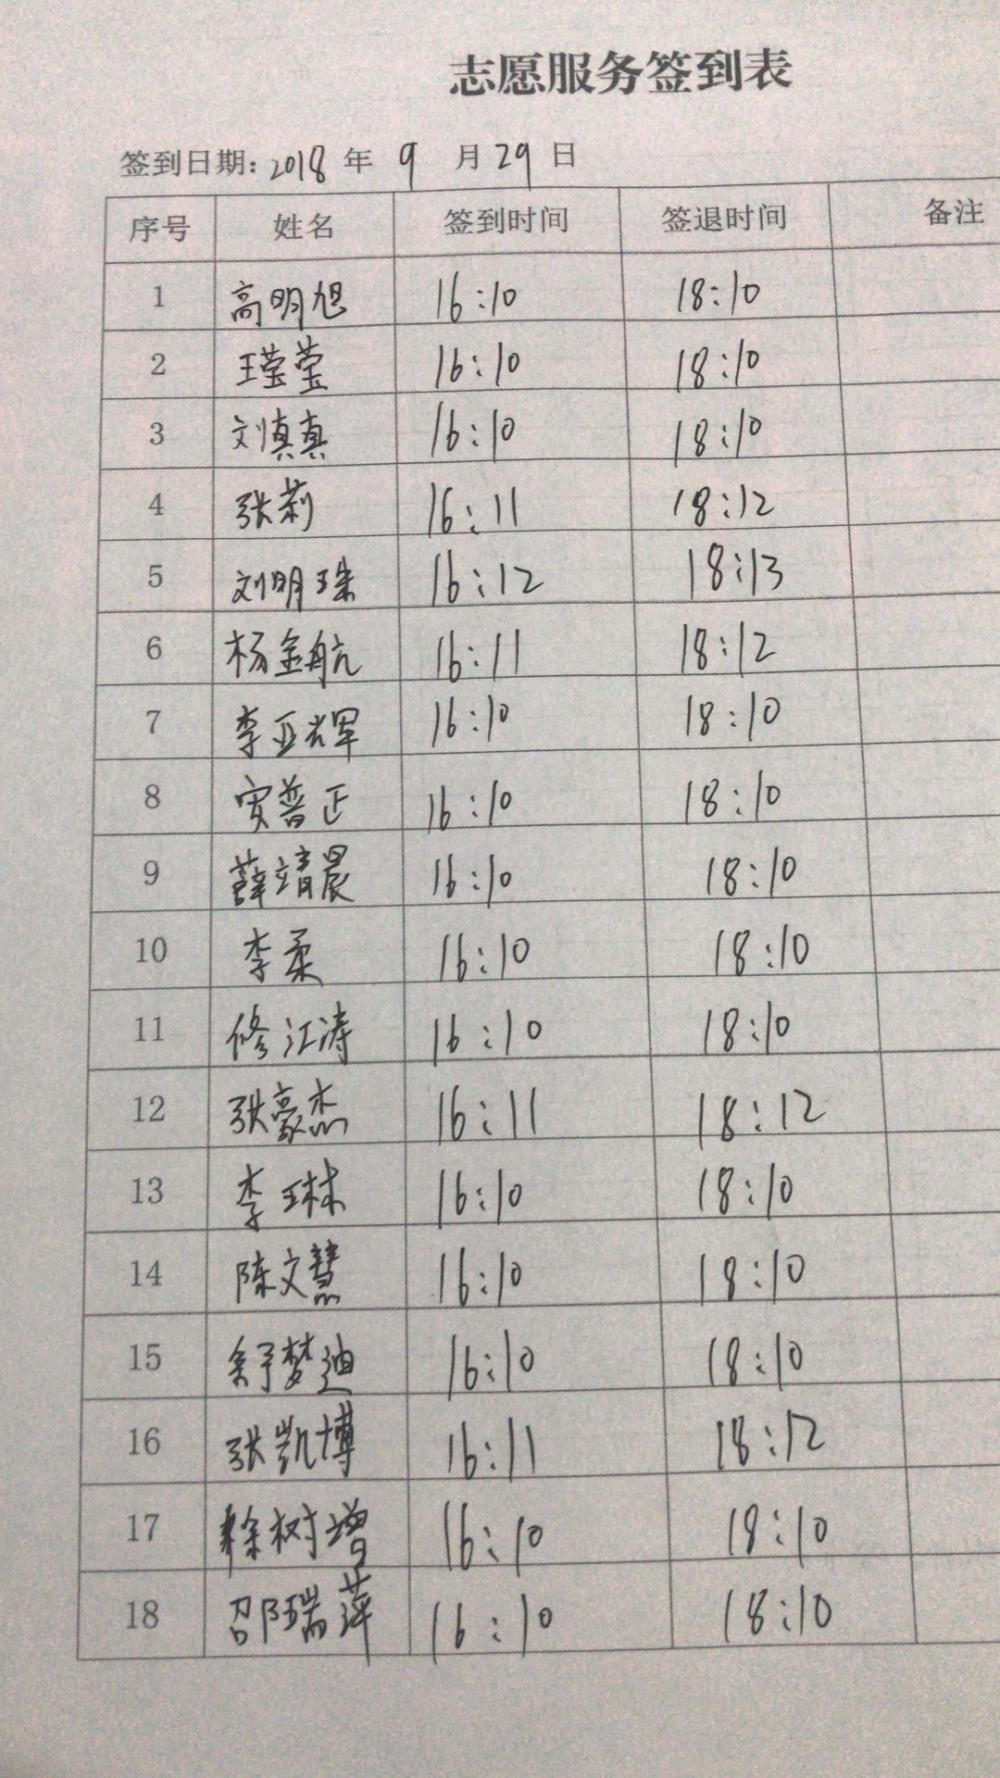 志愿服务签到表
签到日期: 2018 年 9 月 29 日
序号 姓名 签到时间 签退时间 备注
1 高明旭 16:10 18:10
2 王莹莹 16:10 18:10
3 刘真真 16:10 18:10
4 张莉 16:11 18:12
5 刘明珠 16:12 18:13
6 杨金航 16:11 18:12
7 李亚辉 16:10 18:10
8 安普正 16:10 18:10
9 薛靖晨 16:10 18:10
10 李柔 16:10 18:10
11 修江涛 16:10 18:10
12 张豪杰 16:11 18:12
13 李琳 16:10 18:10
14 陈文慧 16:10 18:10
15 舒梦迪 16:10 18:10
16 张凯博 16:11 18:12
17 徐树增 16:10 18:10
18 邵瑞萍 16:10 18:10